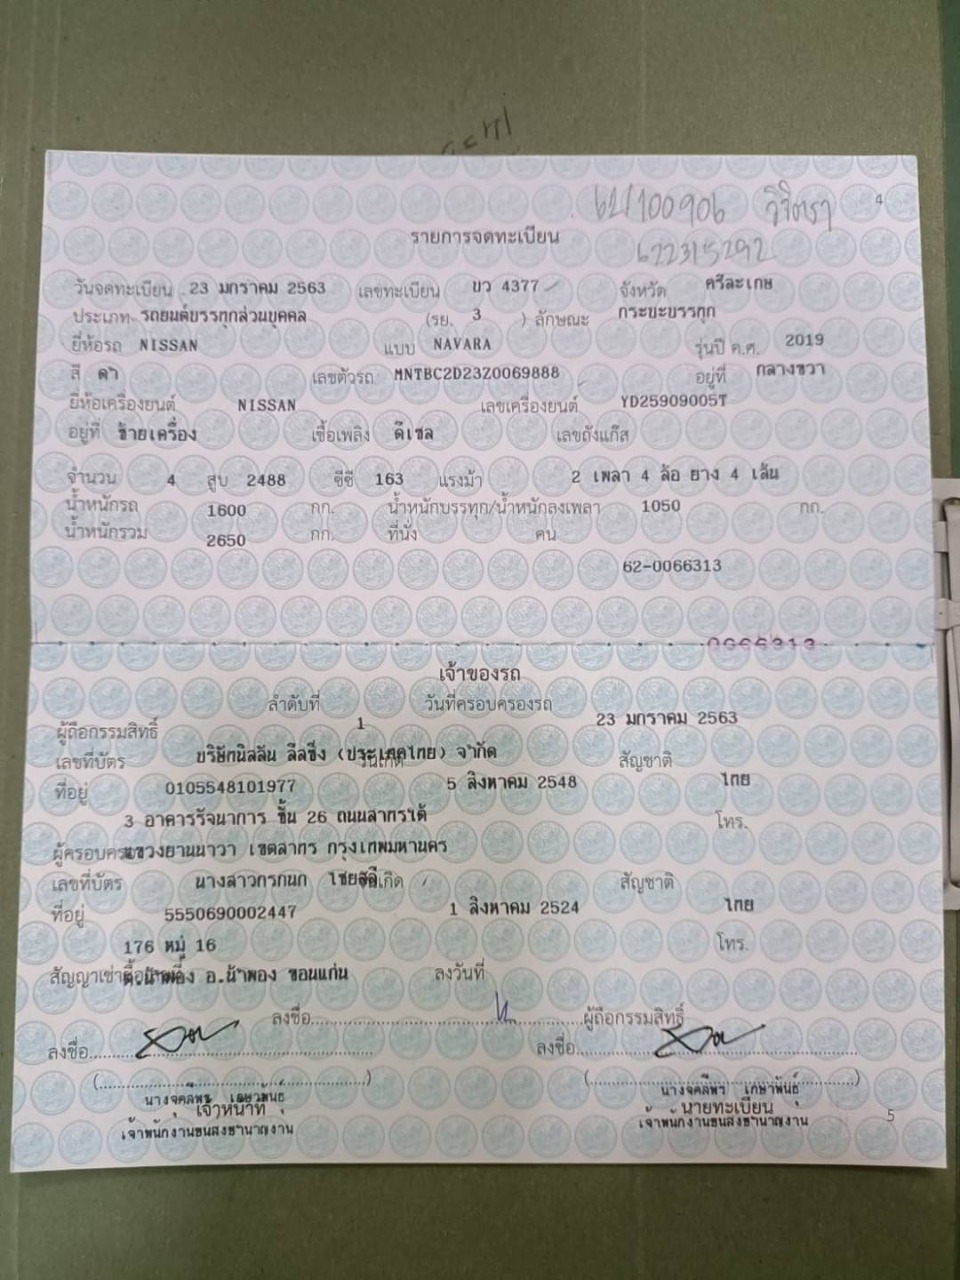 62/100906 วิจิตรา 4
รายการจดทะเบียน 622315292
วันจดทะเบียน 23 มกราคม 2563 เลขทะเบียน ขว 4377 จังหวัด ศรีสะเกษ
ประเภท รถยนต์บรรทุกส่วนบุคคล (รย. 3 ) ลักษณะ กระบะบรรทุก
ยี่ห้อรถ NISSAN แบบ NAVARA รุ่นปี ค.ศ. 2019
สี ดำ เลขตัวรถ MNTBC2D23Z0069888 อยู่ที่ กลางขวา
ยี่ห้อเครื่องยนต์ NISSAN เลขเครื่องยนต์ YD25909005T
อยู่ที่ ซ้ายเครื่อง เชื้อเพลิง ดีเซล เลขถังแก๊ส
จำนวน 4 สูบ 2488 ซีซี 163 แรงม้า 2 เพลา 4 ล้อ ยาง 4 เส้น
น้ำหนักรถ 1600 กก. น้ำหนักบรรทุก/น้ำหนักลงเพลา 1050 กก.
น้ำหนักรวม 2650 กก. ที่นั่ง คน
62-0066313
0066313
เจ้าของรถ
ลำดับที่ 1 วันที่ครอบครองรถ 23 มกราคม 2563
ผู้ถือกรรมสิทธิ์ บริษัทนิสสัน ลีสซิ่ง (ประเทศไทย) จำกัด
เลขที่บัตร 0105548101977 วันเกิด 5 สิงหาคม 2548 สัญชาติ ไทย
ที่อยู่ 3 อาคารรัจนาการ ชั้น 26 ถนนสาทรใต้ โทร.
แขวงยานนาวา เขตสาทร กรุงเทพมหานคร
ผู้ครอบครอง นางสาวกรกนก ไชยสุลี
เลขที่บัตร 5550690002447 วันเกิด 1 สิงหาคม 2524 สัญชาติ ไทย
ที่อยู่ 176 หมู่ 16 โทร.
ต.น้ำพอง อ.น้ำพอง ขอนแก่น
สัญญาเช่าซื้อเลขที่ ลงวันที่
ลงชื่อ ผู้ถือกรรมสิทธิ์
ลงชื่อ ลงชื่อ
( ) ( )
นางจุลีพร เกษาพันธุ์ นางจุลีพร เกษาพันธุ์
เจ้าหน้าที่ นายทะเบียน
เจ้าพนักงานขนส่งชำนาญงาน เจ้าพนักงานขนส่งชำนาญงาน
5